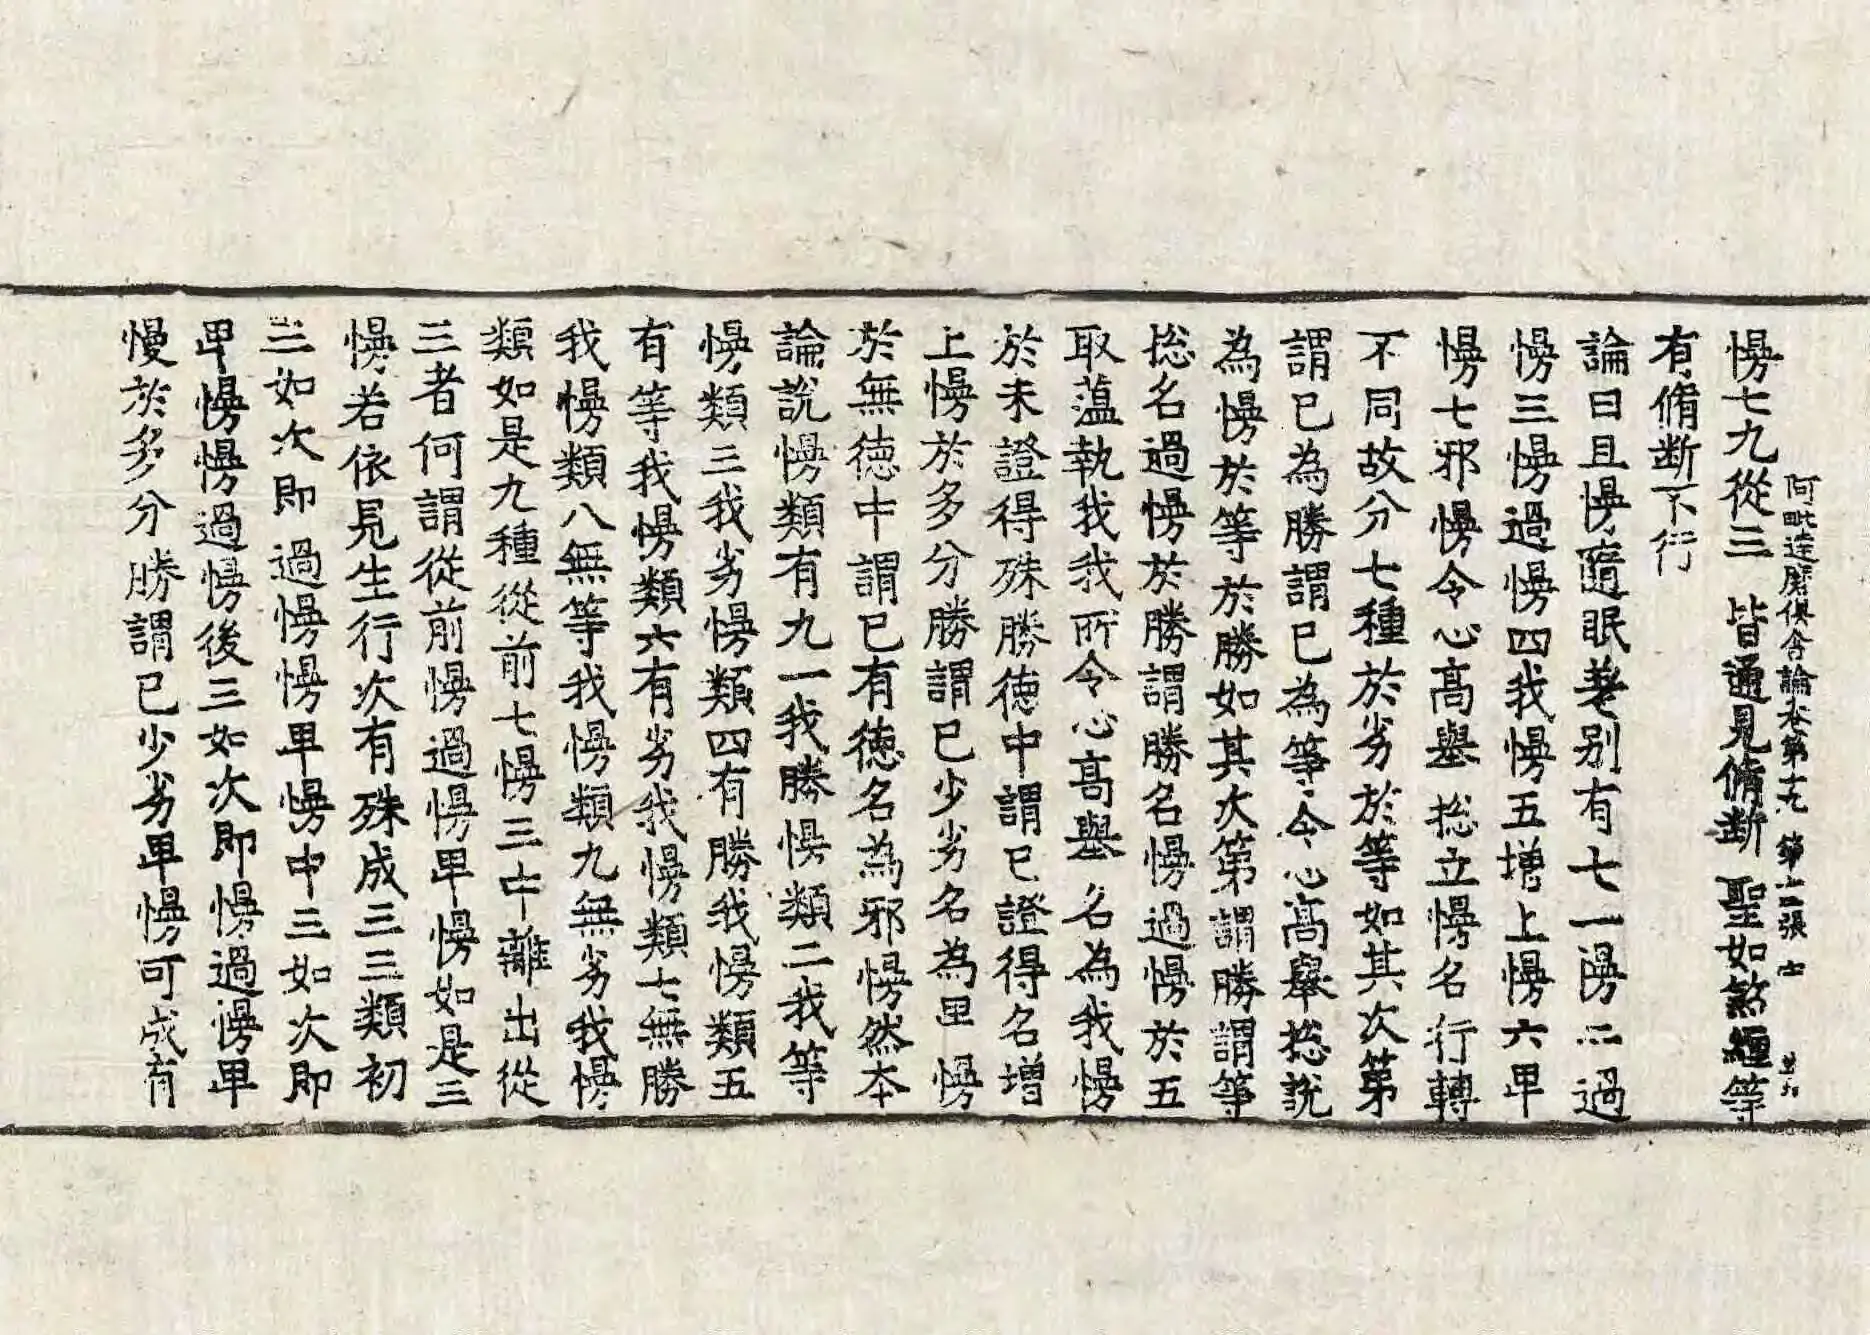 慢七九從三　皆通見脩斷　聖如煞纏等
阿毗達磨俱舍論卷第十九　第十二張
有脩断不行
論曰且慢隨眠差别有七一慢二過
慢三慢過慢四我慢五增上慢六卑
慢七邪慢令心高舉揔立慢名行轉
不同故分七種於劣於等如其次第
謂已為勝謂已為等令心高舉揔說
為慢於等於勝如其次第謂勝謂等
揔名過慢於勝謂勝名慢過慢於五
取藴執我我所令心高舉名為我慢
於未證得殊勝德中謂已證得名增
上慢於多分勝謂已少劣名為卑慢
於無德中謂已有德名為邪慢然本
論說慢類有九一我勝慢類二我等
慢類三我劣慢類四有勝我慢類五
有等我慢類六有劣我慢類七無勝
我慢類八無等我慢類九無劣我慢
類如是九種從前七慢三中離出從
三者何謂從前慢過慢卑慢如是三
慢若依見生行次有殊成三三類初
三如次即過慢慢卑慢中三如次即
卑慢慢過慢後三如次即慢過慢卑
慢於多分勝謂已少劣卑慢可成有